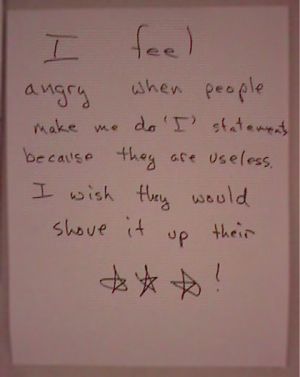 I feel
angry when people
make me do 'I' statements
because they are useless.
I wish they would
shove it up their
☆☆☆!